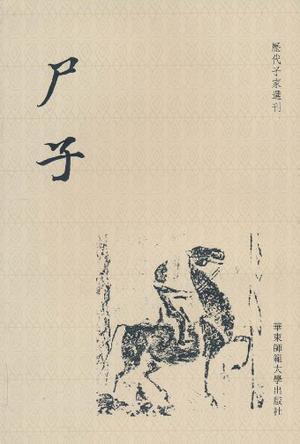 尸子
歷代子家選刊
華東師範大學出版社